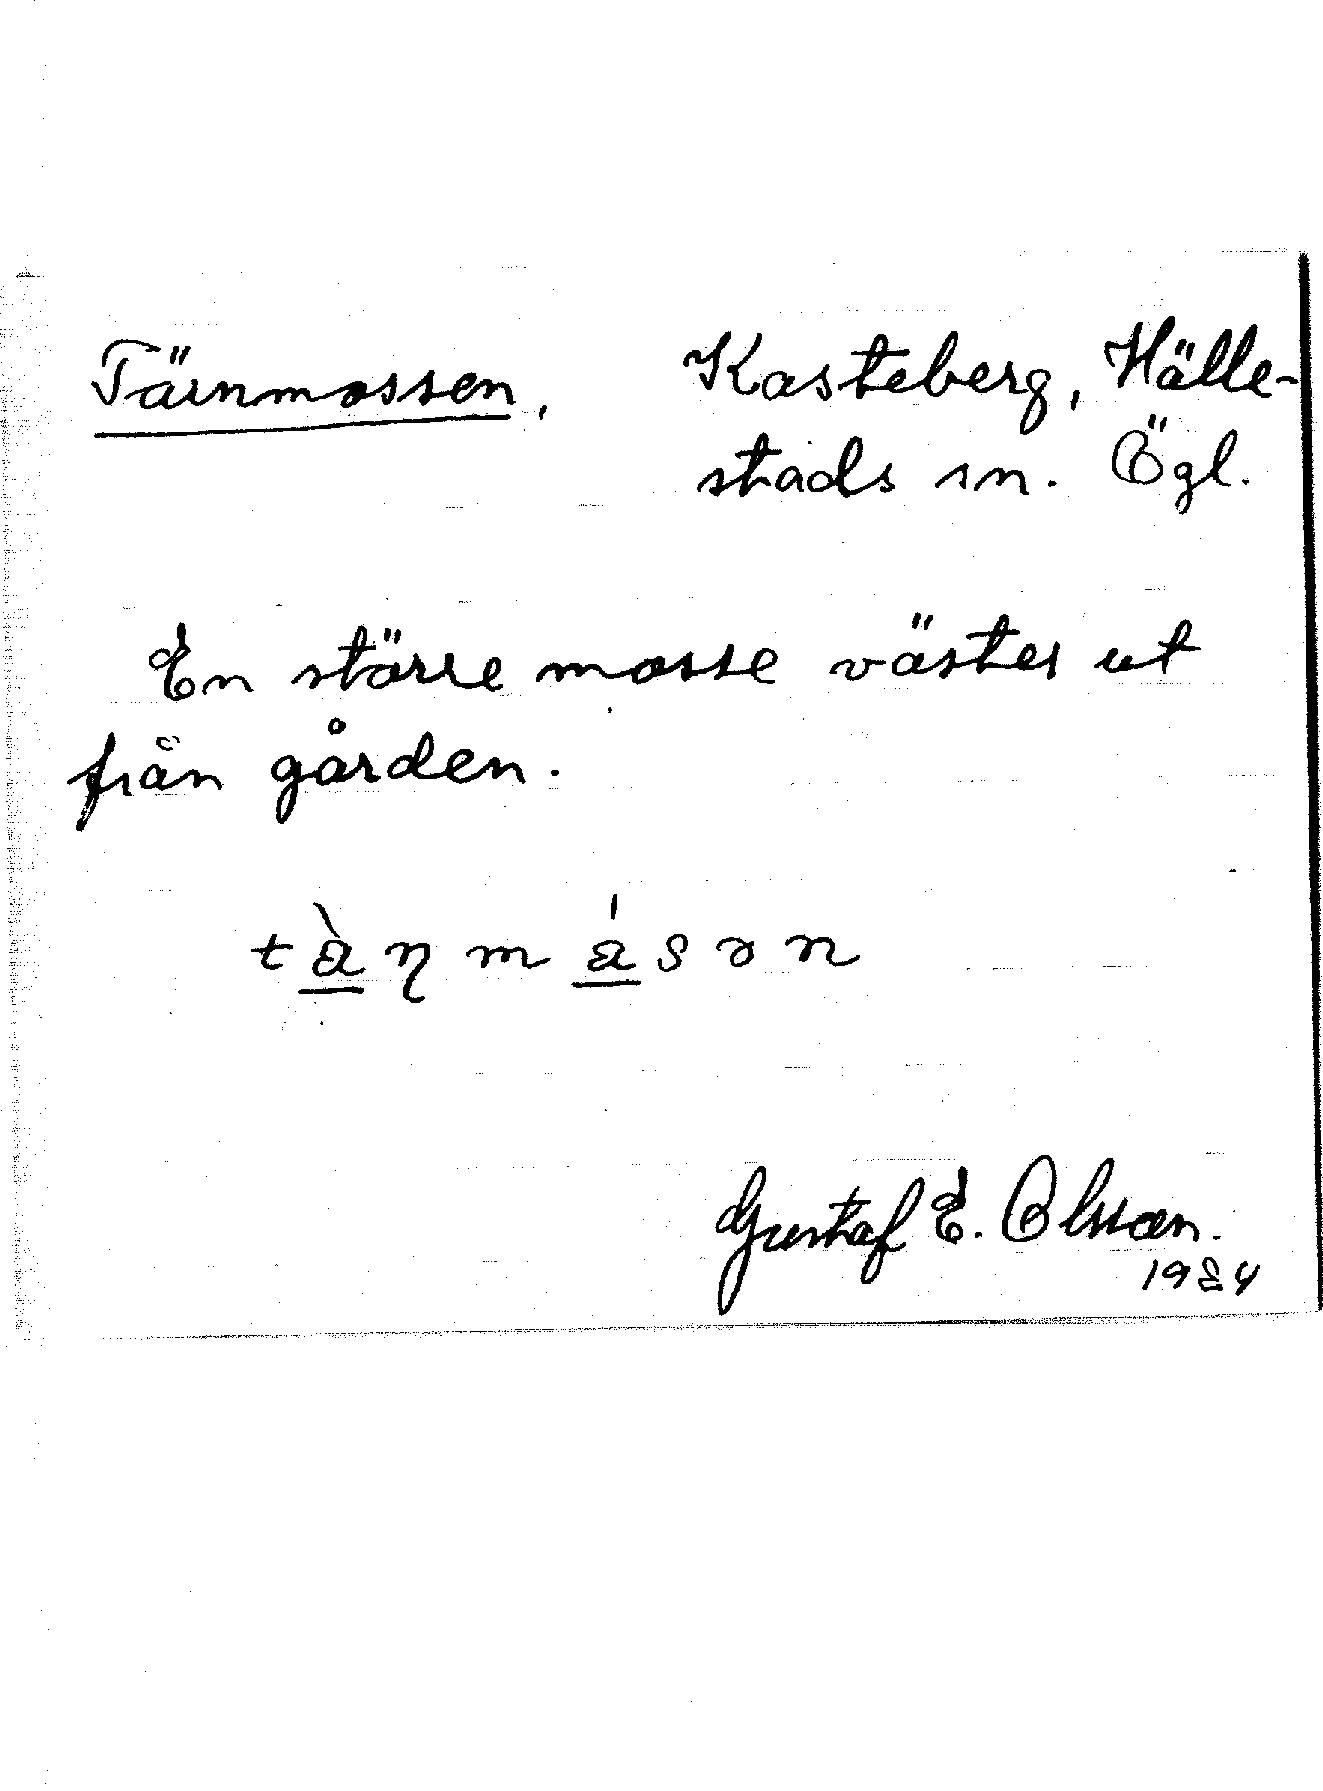 Tärnmossen, Kasteberg, Hälle-
stads sn. Ögl.
En större mosse väster ut
från gården.
Gustaf E. Olsson.